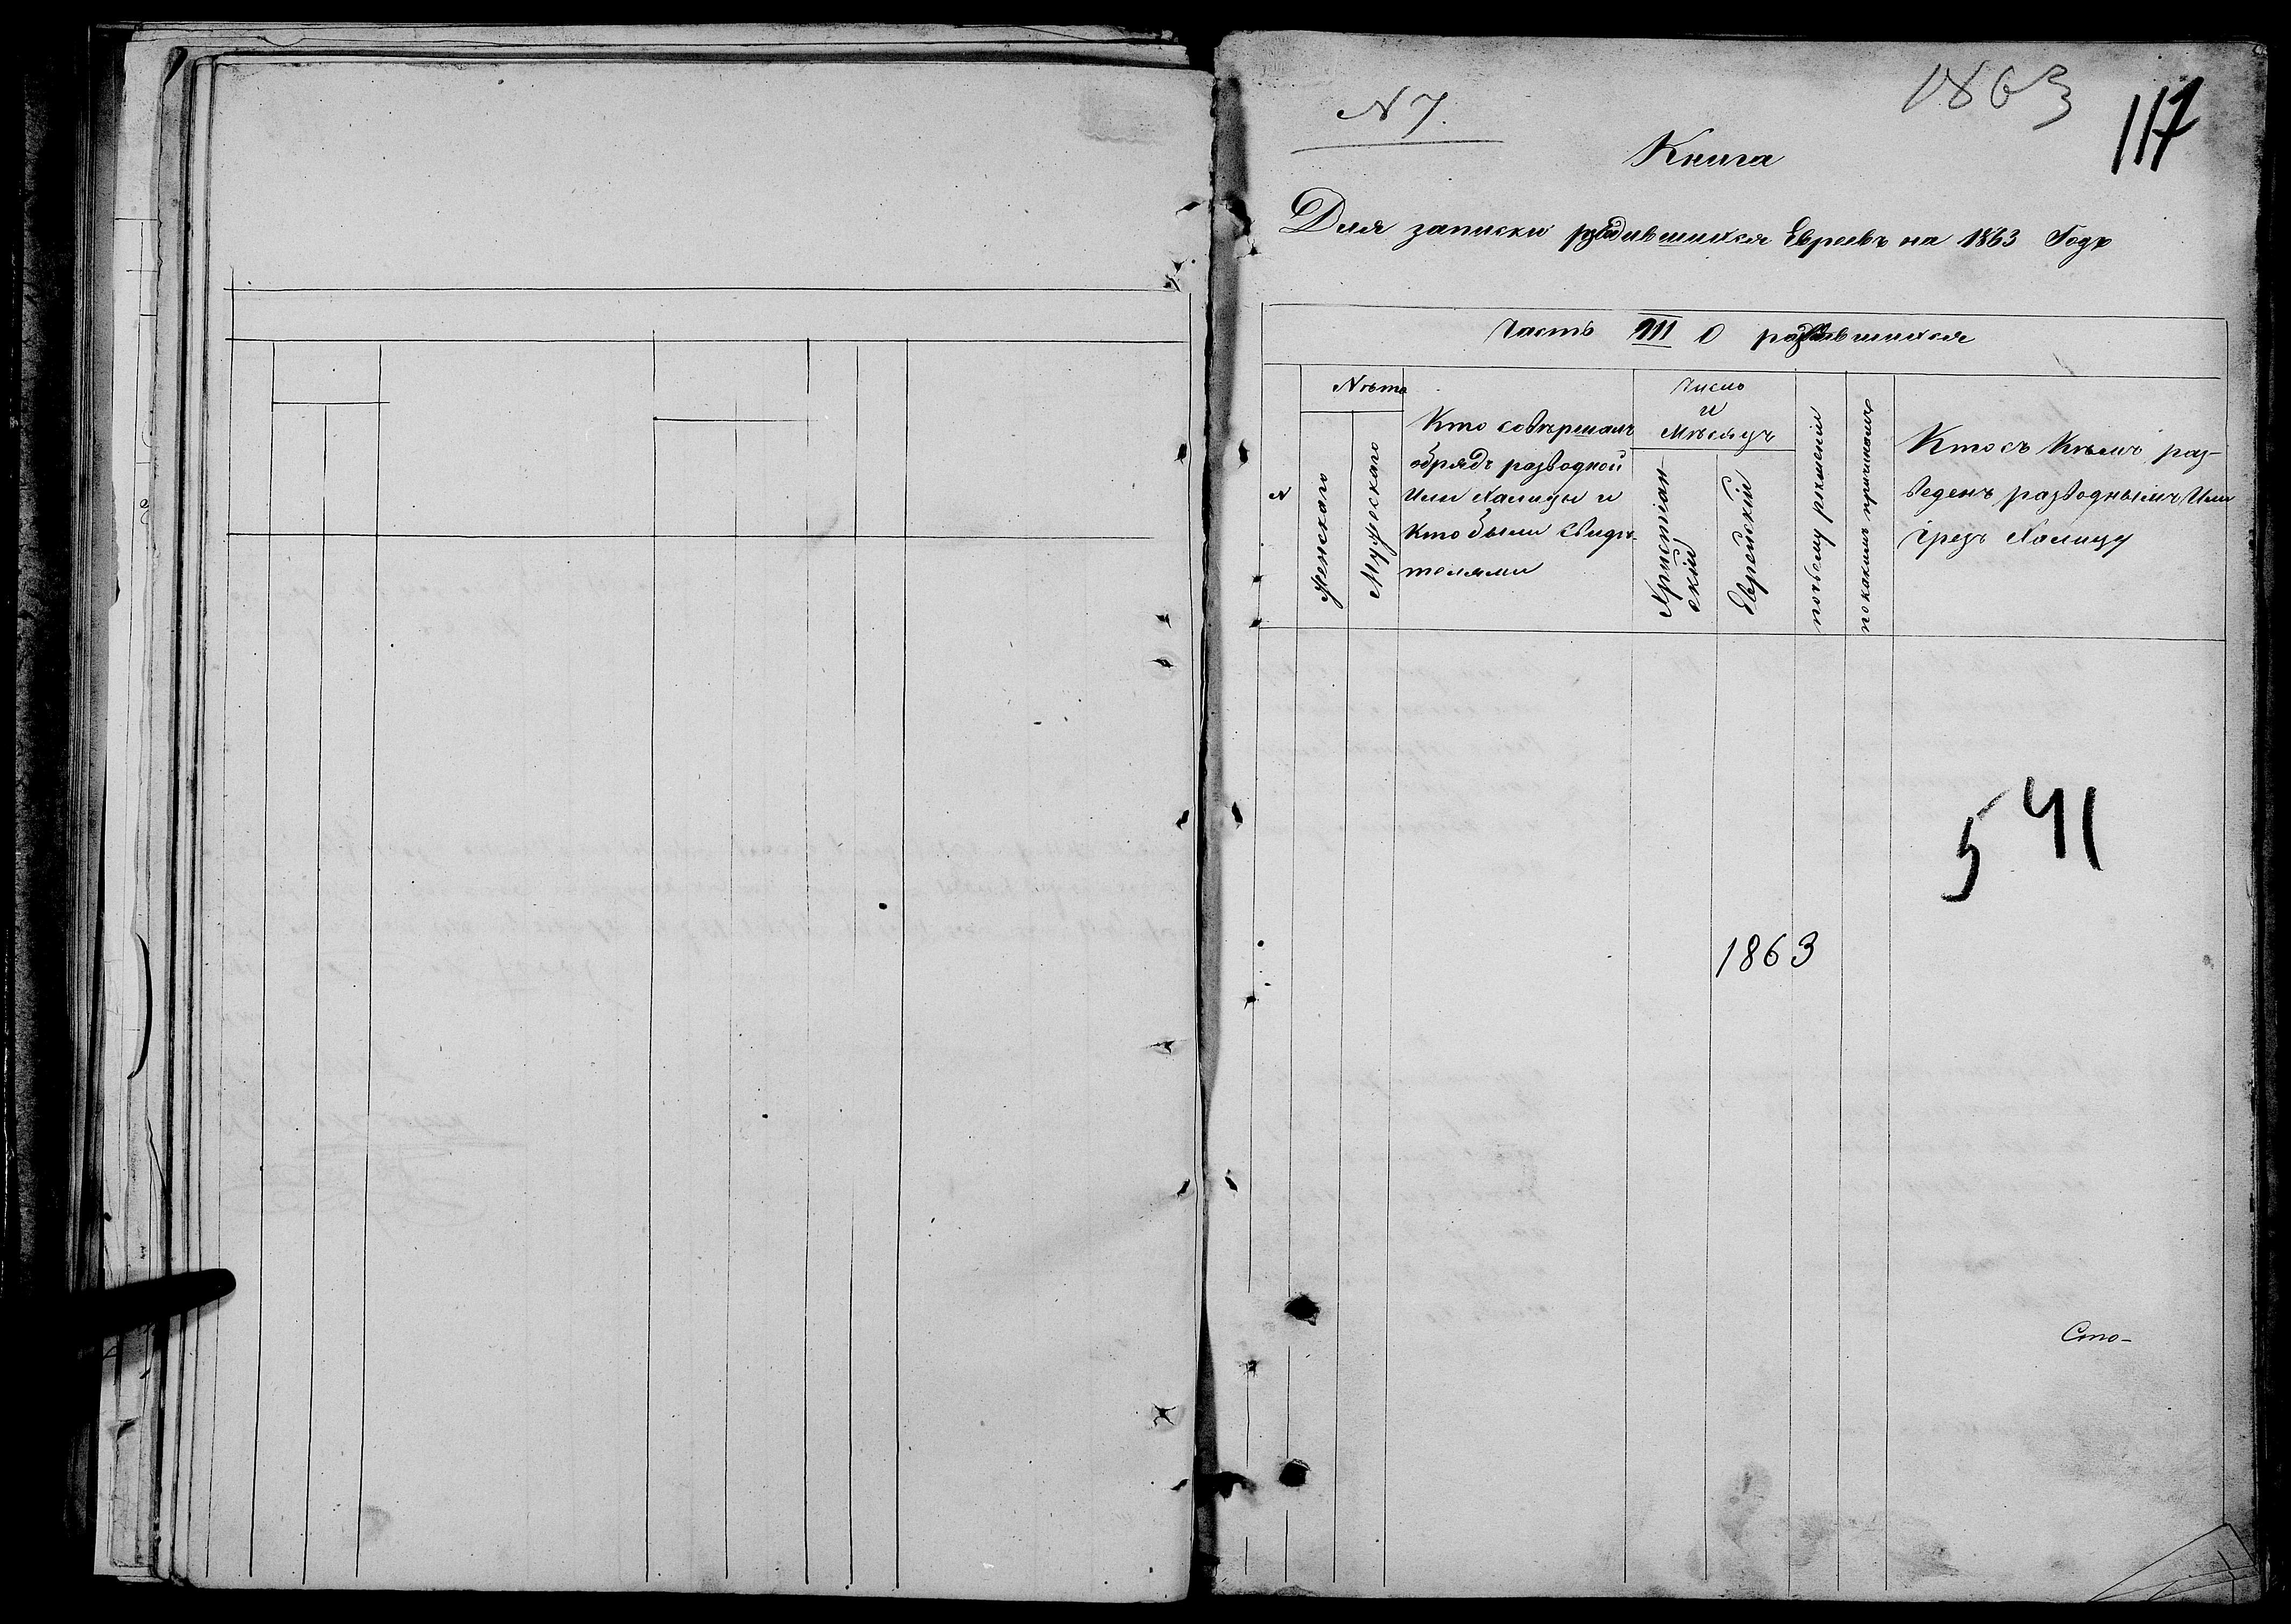 1863
117
N 7.
Книга
Для записки родившихся Евреевъ на 1863 Годъ
Часть III О разведшихся
N
Лѣта
Женскаго
Мужескаго
Кто совершалъ
обрядъ разводной
Или Халицы и
Кто были Свидѣ-
телями
Число
и
Мѣсяцъ
Христіан-
скій
Еврейскій
по чьему рѣшенію
по какимъ причинамъ
Кто съ Кѣмъ раз-
веденъ разводнымъ Или
Чрезъ Халицу
541
1863
Сто-